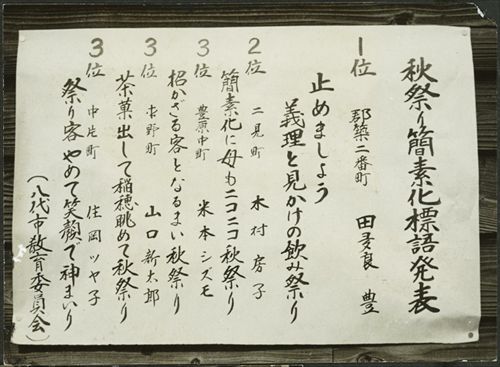 秋祭り簡素化標語発表
1位 郡築二番町 田多良 豊
止めましょう
義理と見かけの飲み祭り
2位 二見町 木村房子
簡素化に母もニコニコ秋祭り
3位 豊原中町 米本シズモ
招かざる客となるまい秋祭り
3位 本野町 山口新太郎
茶菓出して稲穂眺めて秋祭り
3位 中片町 住岡ツヤ子
祭り客やめて笑顔で神まいり
(八代市教育委員会)